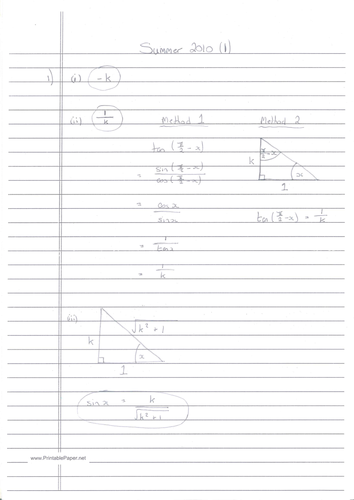 Summer 2010 (1)
1) (i) -k
(ii) 1/k
Method 1
Method 2
tan (π/2 - x)
= sin(π/2 - x)/cos(π/2 - x)
= cos x/sin x
= 1/tan x
= 1/k
π/2 - x
k
x
1
tan(π/2 - x) = 1/k
(iii)
k
√k² + 1
x
1
sin x = k/√k² + 1
www.PrintablePaper.net